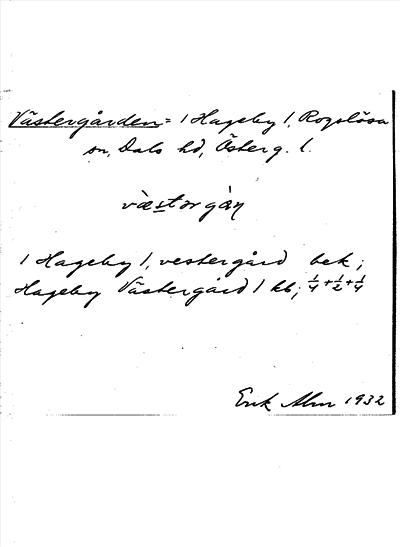 Västergården = / Hageby /, Rogslösa
sn, Dals hd, Österg. l.
væ̀storgàṇ
/ Hageby /, vestergård bek;
Hageby Västergård / kb; 1/4 + 1/2 + 1/4
Erik Alm 1932